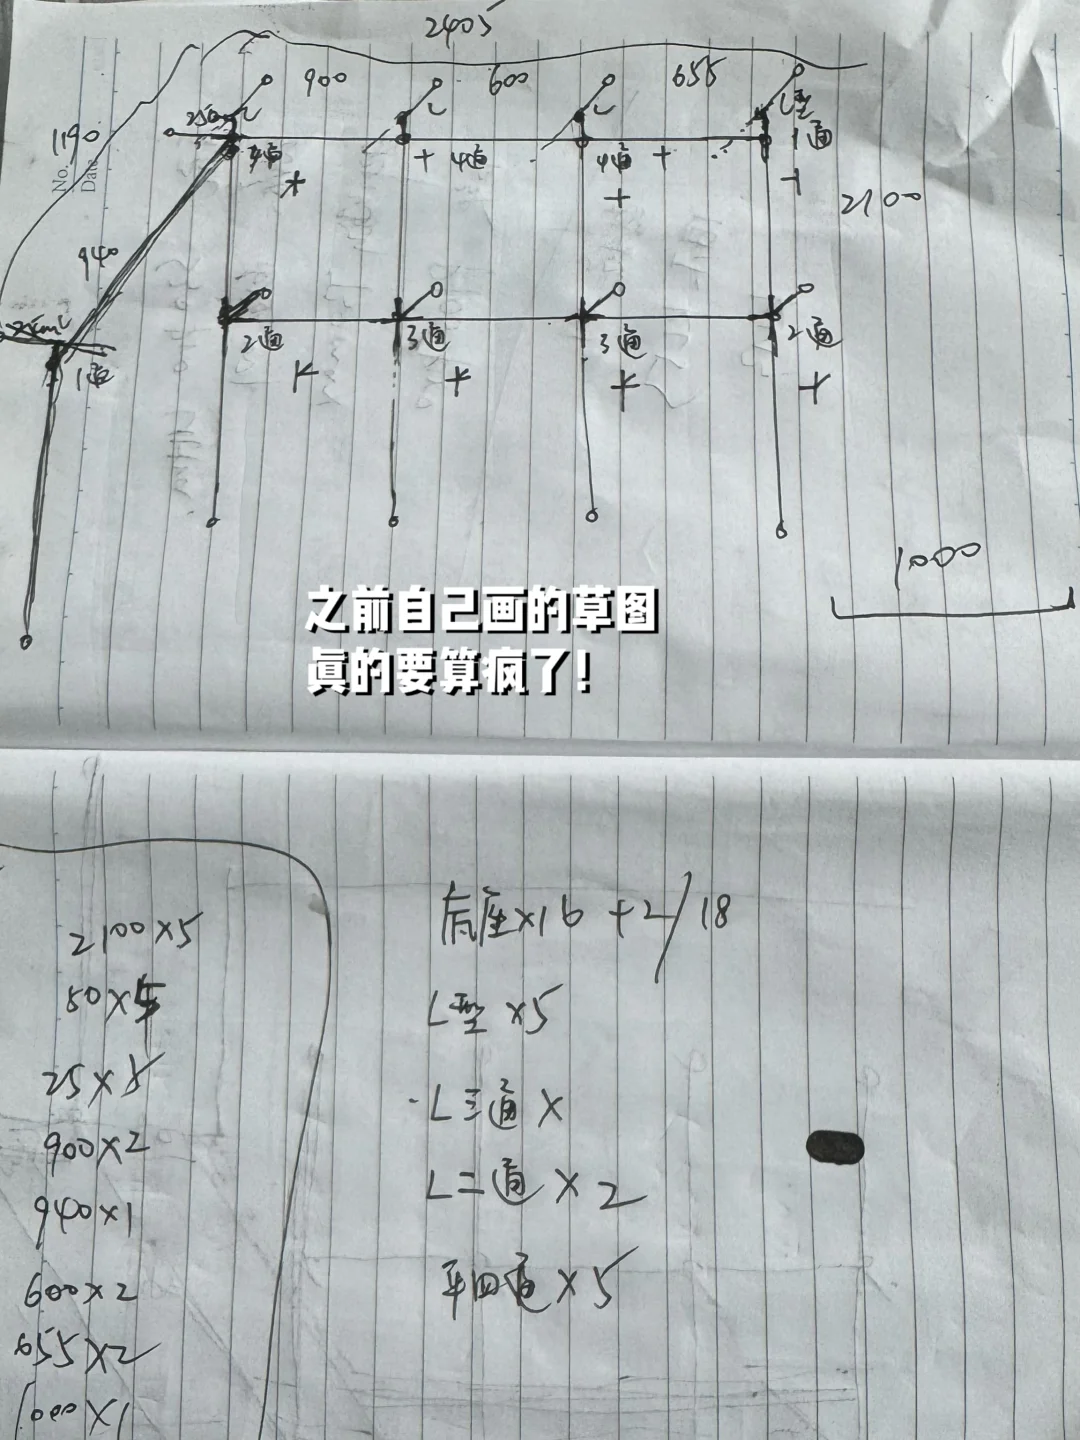 2405
900
600
655
250
L
L
L
L型
1190
No.
Date
4通
+
+
4通
4通
+
+
1通
+
2100
940
1通
2通
3通
3通
2通
+
+
+
1000
之前自己画的草图
真的要算疯了！
2100×5
50×5
25×8
900×2
940×1
600×2
655×2
1000×1
底座×16 +2/18
L型 ×5
L三通 ×
L二通 × 2
平四通 ×5